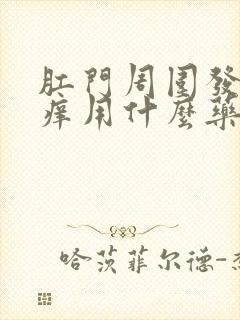 肛門周围發
痒用什麼藥
哈茨菲尔德-杰